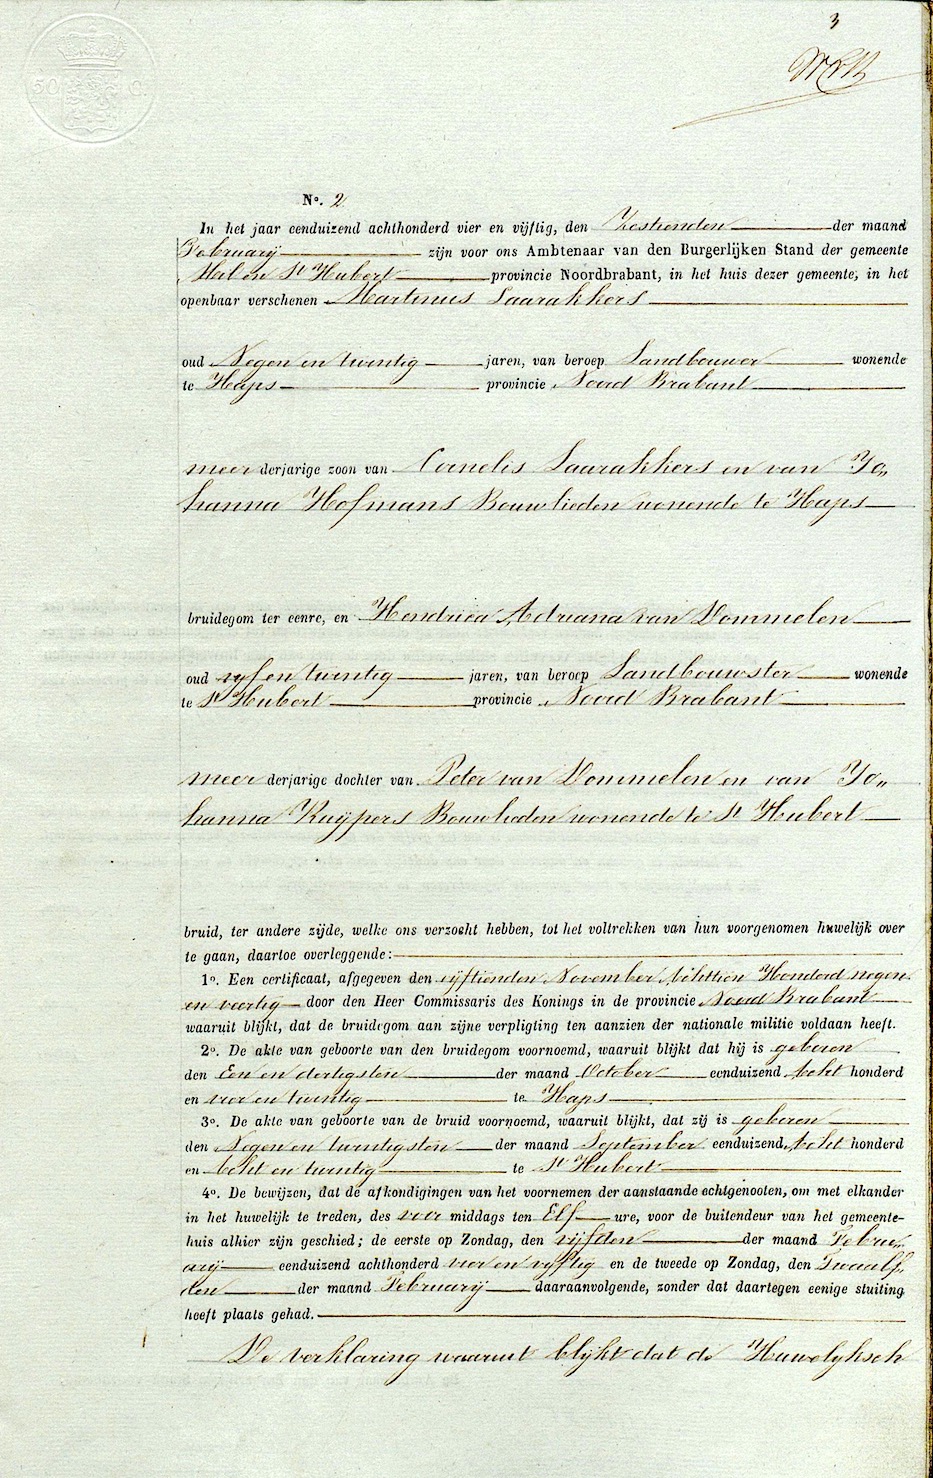 3
No. 2
In het jaar eenduizend achthonderd vier en vijftig, den Zestienden der maand
Februarij zijn voor ons Ambtenaar van den Burgerlijken Stand der gemeente
Mil en St Hubert provincie Noordbrabant, in het huis dezer gemeente, in het
openbaar verschenen Martinus Laarakkers
oud Negen en twintig jaren, van beroep Landbouwer wonende
te Haps provincie Noord Brabant
meer derjarige zoon van Cornelis Laarakkers en van Jo„
hanna Hofmans Bouwlieden wonende te Haps
bruidegom ter eenre, en Hendrica Adriana van Dommelen
oud vyf en twintig jaren, van beroep Landbouwster wonende
te St Hubert provincie Noord Brabant
meer derjarige dochter van Peter van Dommelen en van Jo„
hanna Kuijpers Bouwlieden wonende te St Hubert
bruid, ter andere zijde, welke ons verzocht hebben, tot het voltrekken van hun voorgenomen huwelijk over
te gaan, daartoe overleggende:
1o. Een certificaat, afgegeven den vijftienden November Achttien Honderd negen
en veertig door den Heer Commissaris des Konings in de provincie Noord Brabant
waaruit blijkt, dat de bruidegom aan zijne verpligting ten aanzien der nationale militie voldaan heeft.
2o. De akte van geboorte van den bruidegom voornoemd, waaruit blijkt dat hij is geboren
den Een en dertigsten der maand October eenduizend Acht honderd
en vier en twintig te Haps
3o. De akte van geboorte van de bruid voornoemd, waaruit blijkt, dat zij is geboren
den Negen en twintigsten der maand September eenduizend Acht honderd
en Acht en twintig te St Hubert
4o. De bewijzen, dat de afkondigingen van het voornemen der aanstaande echtgenooten, om met elkander
in het huwelijk te treden, des voor middags ten Elf ure, voor de buitendeur van het gemeente-
huis alhier zijn geschied; de eerste op Zondag, den vijfden der maand Febru„
arij eenduizend achthonderd vier en vyftig en de tweede op Zondag, den Twaalf„
den der maand Februarij daaraanvolgende, zonder dat daartegen eenige stuiting
heeft plaats gehad.
De verklaring waaruit blijkt dat de Huwelyksch